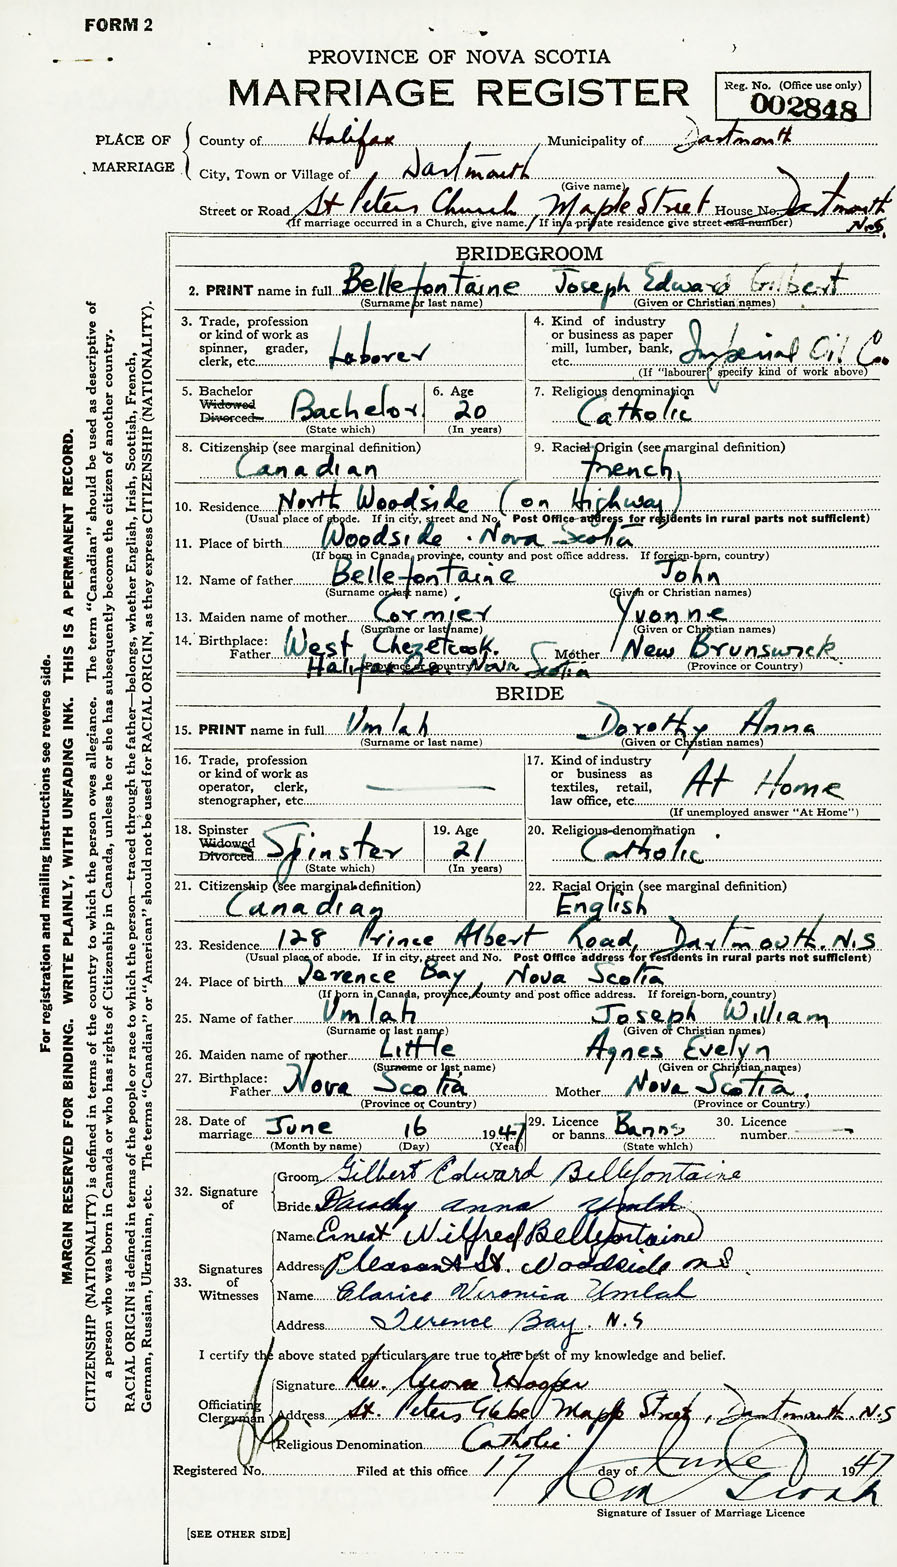 FORM 2
PROVINCE OF NOVA SCOTIA
MARRIAGE REGISTER
Reg. No. (Office use only)
002848
PLACE OF MARRIAGE
County of Halifax Municipality of Dartmouth
City, Town or Village of Dartmouth
(Give name)
Street or Road St Peters Church Maple Street House No. Dartmouth N.S.
(If marriage occurred in a Church, give name. If in a private residence give street and number)
BRIDEGROOM
2. PRINT name in full Bellefontaine Joseph Edward Gilbert
(Surname or last name) (Given or Christian names)
3. Trade, profession or kind of work as spinner, grader, clerk, etc. Laborer
4. Kind of industry or business as paper mill, lumber, bank, etc. Imperial Oil Co.
(If "labourer" specify kind of work above)
5. Bachelor Widowed Divorced Bachelor
(State which)
6. Age 20
(In years)
7. Religious denomination
Catholic
8. Citizenship (see marginal definition)
Canadian
9. Racial Origin (see marginal definition)
French
10. Residence North Woodside (on Highway)
(Usual place of abode. If in city, street and No. Post Office address for residents in rural parts not sufficient)
11. Place of birth Woodside. Nova Scotia
(If born in Canada, province, county and post office address. If foreign-born, country)
12. Name of father Bellefontaine John
(Surname or last name) (Given or Christian names)
13. Maiden name of mother Cormier Yvonne
(Surname or last name) (Given or Christian names)
14. Birthplace: Father West Chezetcook. Mother New Brunswick
Halifax Co. Nova Scotia
(Province or Country) (Province or Country)
BRIDE
15. PRINT name in full Umlah Dorothy Anna
(Surname or last name) (Given or Christian names)
16. Trade, profession or kind of work as operator, clerk, stenographer, etc.
17. Kind of industry or business as textiles, retail, law office, etc. At Home
(If unemployed answer "At Home")
18. Spinster Widowed Divorced Spinster
(State which)
19. Age 21
(In years)
20. Religious denomination
Catholic
21. Citizenship (see marginal definition)
Canadian
22. Racial Origin (see marginal definition)
English
23. Residence 128 Prince Albert Road, Dartmouth. N.S
(Usual place of abode. If in city, street and No. Post Office address for residents in rural parts not sufficient)
24. Place of birth Terence Bay, Nova Scotia
(If born in Canada, province, county and post office address. If foreign-born, country)
25. Name of father Umlah Joseph William
(Surname or last name) (Given or Christian names)
26. Maiden name of mother Little Agnes Evelyn
(Surname or last name) (Given or Christian names)
27. Birthplace: Father Nova Scotia Mother Nova Scotia.
(Province or Country) (Province or Country)
28. Date of marriage June 16 1947
(Month by name) (Day) (Year)
29. Licence or banns Banns
(State which)
30. Licence number
32. Signature of
Groom Gilbert Edward Bellefontaine
Bride Dorothy Anna Umlah
33. Signatures of Witnesses
Name Ernest Wilfred Bellefontaine
Address Pleasant St. Woodside N.S.
Name Clarice Veronica Umlah
Address Terence Bay. N.S
I certify the above stated particulars are true to the best of my knowledge and belief.
Officiating Clergyman
Signature Rev. George E Hooper
Address St. Peters Glebe Maple Street, Dartmouth. N.S
Religious Denomination Catholic
Registered No. Filed at this office 17 day of June 1947
Signature of Issuer of Marriage Licence
[SEE OTHER SIDE]
For registration and mailing instructions see reverse side.
MARGIN RESERVED FOR BINDING. WRITE PLAINLY, WITH UNFADING INK. THIS IS A PERMANENT RECORD.
CITIZENSHIP (NATIONALITY) is defined in terms of the country to which the person owes allegiance. The term "Canadian" should be used as descriptive of
a person who was born in Canada or who has rights of Citizenship in Canada, unless he or she has subsequently become the citizen of another country.
RACIAL ORIGIN is defined in terms of the people or race to which the person—traced through the father—belongs, whether English, Irish, Scottish, French,
German, Russian, Ukrainian, etc. The terms "Canadian" or "American" should not be used for RACIAL ORIGIN, as they express CITIZENSHIP (NATIONALITY).